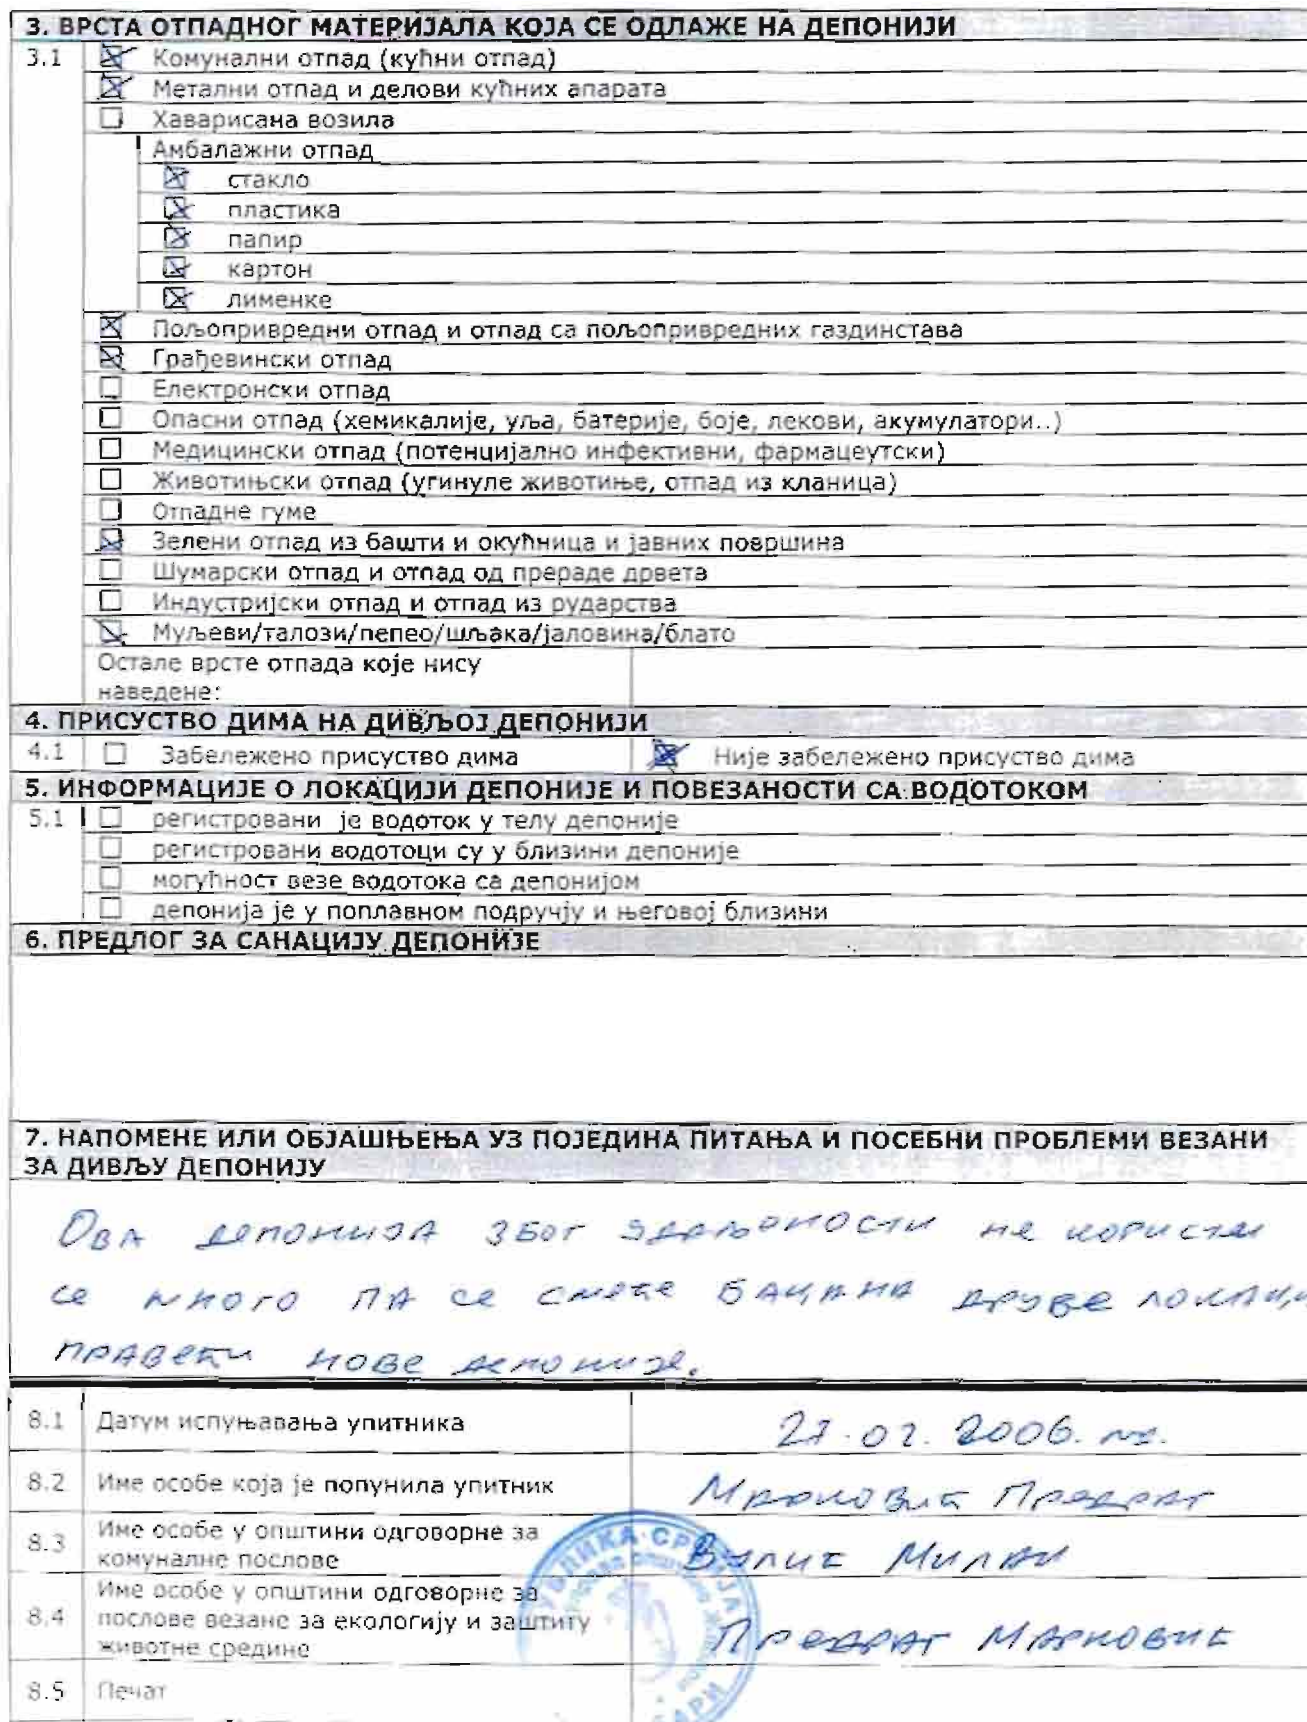 3. ВРСТА ОТПАДНОГ МАТЕРИЈАЛА КОЈА СЕ ОДЛАЖЕ НА ДЕПОНИЈИ
3.1 Комунални отпад (кућни отпад)
Метални отпад и делови кућних апарата
Хаварисана возила
Амбалажни отпад
стакло
пластика
папир
картон
лименке
Пољопривредни отпад и отпад са пољопривредних газдинстава
Грађевински отпад
Електронски отпад
Опасни отпад (хемикалије, уља, батерије, боје, лекови, акумулатори..)
Медицински отпад (потенцијално инфективни, фармацеутски)
Животињски отпад (угинуле животиње, отпад из кланица)
Отпадне гуме
Зелени отпад из башти и окућница и јавних површина
Шумарски отпад и отпад од прераде дрвета
Индустријски отпад и отпад из рударства
Муљеви/талози/пепео/шљака/јаловина/блато
Остале врсте отпада које нису
наведене:
4. ПРИСУСТВО ДИМА НА ДИВЉОЈ ДЕПОНИЈИ
4.1 Забележено присуство дима Није забележено присуство дима
5. ИНФОРМАЦИЈЕ О ЛОКАЦИЈИ ДЕПОНИЈЕ И ПОВЕЗАНОСТИ СА ВОДОТОКОМ
5.1 регистровани је водоток у телу депоније
регистровани водотоци су у близини депоније
могућност везе водотока са депонијом
депонија је у поплавном подручју и његовој близини
6. ПРЕДЛОГ ЗА САНАЦИЈУ ДЕПОНИЈЕ
7. НАПОМЕНЕ ИЛИ ОБЈАШЊЕЊА УЗ ПОЈЕДИНА ПИТАЊА И ПОСЕБНИ ПРОБЛЕМИ ВЕЗАНИ
ЗА ДИВЉУ ДЕПОНИЈУ
ОВА ДЕПОНИЈА ЗБОГ не користи
се много ПА се смеће БАЦА НА друге
ПРАВЕЋИ НОВЕ депоније.
8.1 Датум испуњавања упитника 2006.
8.2 Име особе која је попунила упитник Предраг
8.3 Име особе у општини одговорне за
комуналне послове Вулић Милан
8.4 Име особе у општини одговорне за
послове везане за екологију и заштиту
животне средине Предраг Марковић
8.5 Печат